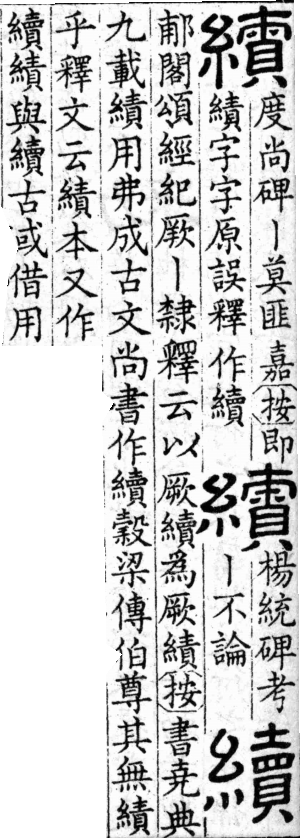 續
度尚碑丨莫匪嘉按即
績字字原誤釋作續
續
楊統碑考
丨不論
續
郙閣頌經紀厥丨隸釋云以厥續為厥績按書堯典
九載績用弗成古文尚書作續穀梁傳伯尊其無績
乎釋文云績本又作
續績與續古或借用